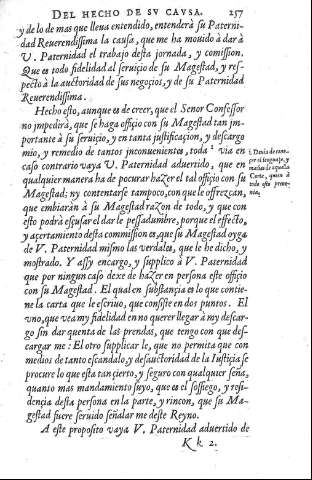 DEL HECHO DE SV CAVSA. 257
y de lo de mas que lleua entendido, entenderà su Paterni-
dad Reuerendissima la causa, que me ha mouido à dar à
V. Paternidad el trabajo desta jornada, y comission.
Que es todo fidelidad al seruiçio de su Magestad, y res-
pecto à la auctoridad de sus negoçios, y de su Paternidad
Reuerendissima.
Hecho esto, aunque es de creer, que el Senor Confessor
no jmpedirà, que se haga offiçio con su Magestad tan jm-
portante à su seruiçio, y en tanta justificaçion, y descargo
mio, y remedio de tantos jnconuenientes, toda via en
caso contrario vaya V. Paternidad aduertido, que en
qualquier manera ha de pocurar hazer el tal offiçio con su
Magestad; ny contentarse tampoco, con que le offrezcan,
que embiaràn à su Magestad razon de todo, y que con
esto podrà escusar el dar le pessadumbre, porque el effecto,
y açertamiento desta commission es, que su Magestad oyga
de V. Paternidad mismo las verdades, que le he dicho, y
mostrado. Y assy encargo, y supplico à V. Paternidad
que por ningun caso dexe de hazer en persona este offiçio
con su Magestad. El qual en substançia es lo que contie-
ne la carta que le escriuo, que consiste en dos puntos. El
vno, que vea my fidelidad en no querer llegar à my descar-
go sin dar quenta de las prendas, que tengo con que des-
cargar me: El otro supplicar le, que no permita que con
medios de tanto escandalo, y desauctoridad de la Iustiçia se
procure lo que esta tan çierto, y seguro con qualquier seña,
quanto mas mandamiento suyo, que es el sossiego, y resi-
dençia desta persona en la parte, y rincon, que su Ma-
gestad fuere seruido señalar me deste Reyno.
A este proposito vaya V. Paternidad aduertido de
K k 2.